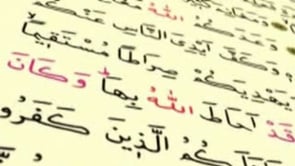 وَعَدَكُمُ اللّٰهُ
وَكَفَّ اَيْدِيَ النَّاسِ عَنْكُمْ
يَهْدِيَكُمْ صِرَاطًا مُسْتَقِيمًا
قَدْ اَحَاطَ اللّٰهُ بِهَا وَكَانَ
الَّذِينَ كَفَرُوا